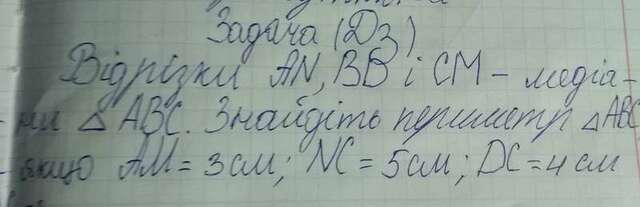 Задача (Дз)
Відрізки AN, BB і CM – медіа-
ни △ ABC. Знайдіть периметр △ ABC
якщо AM = 3 см; NC = 5 см; DC = 4 см